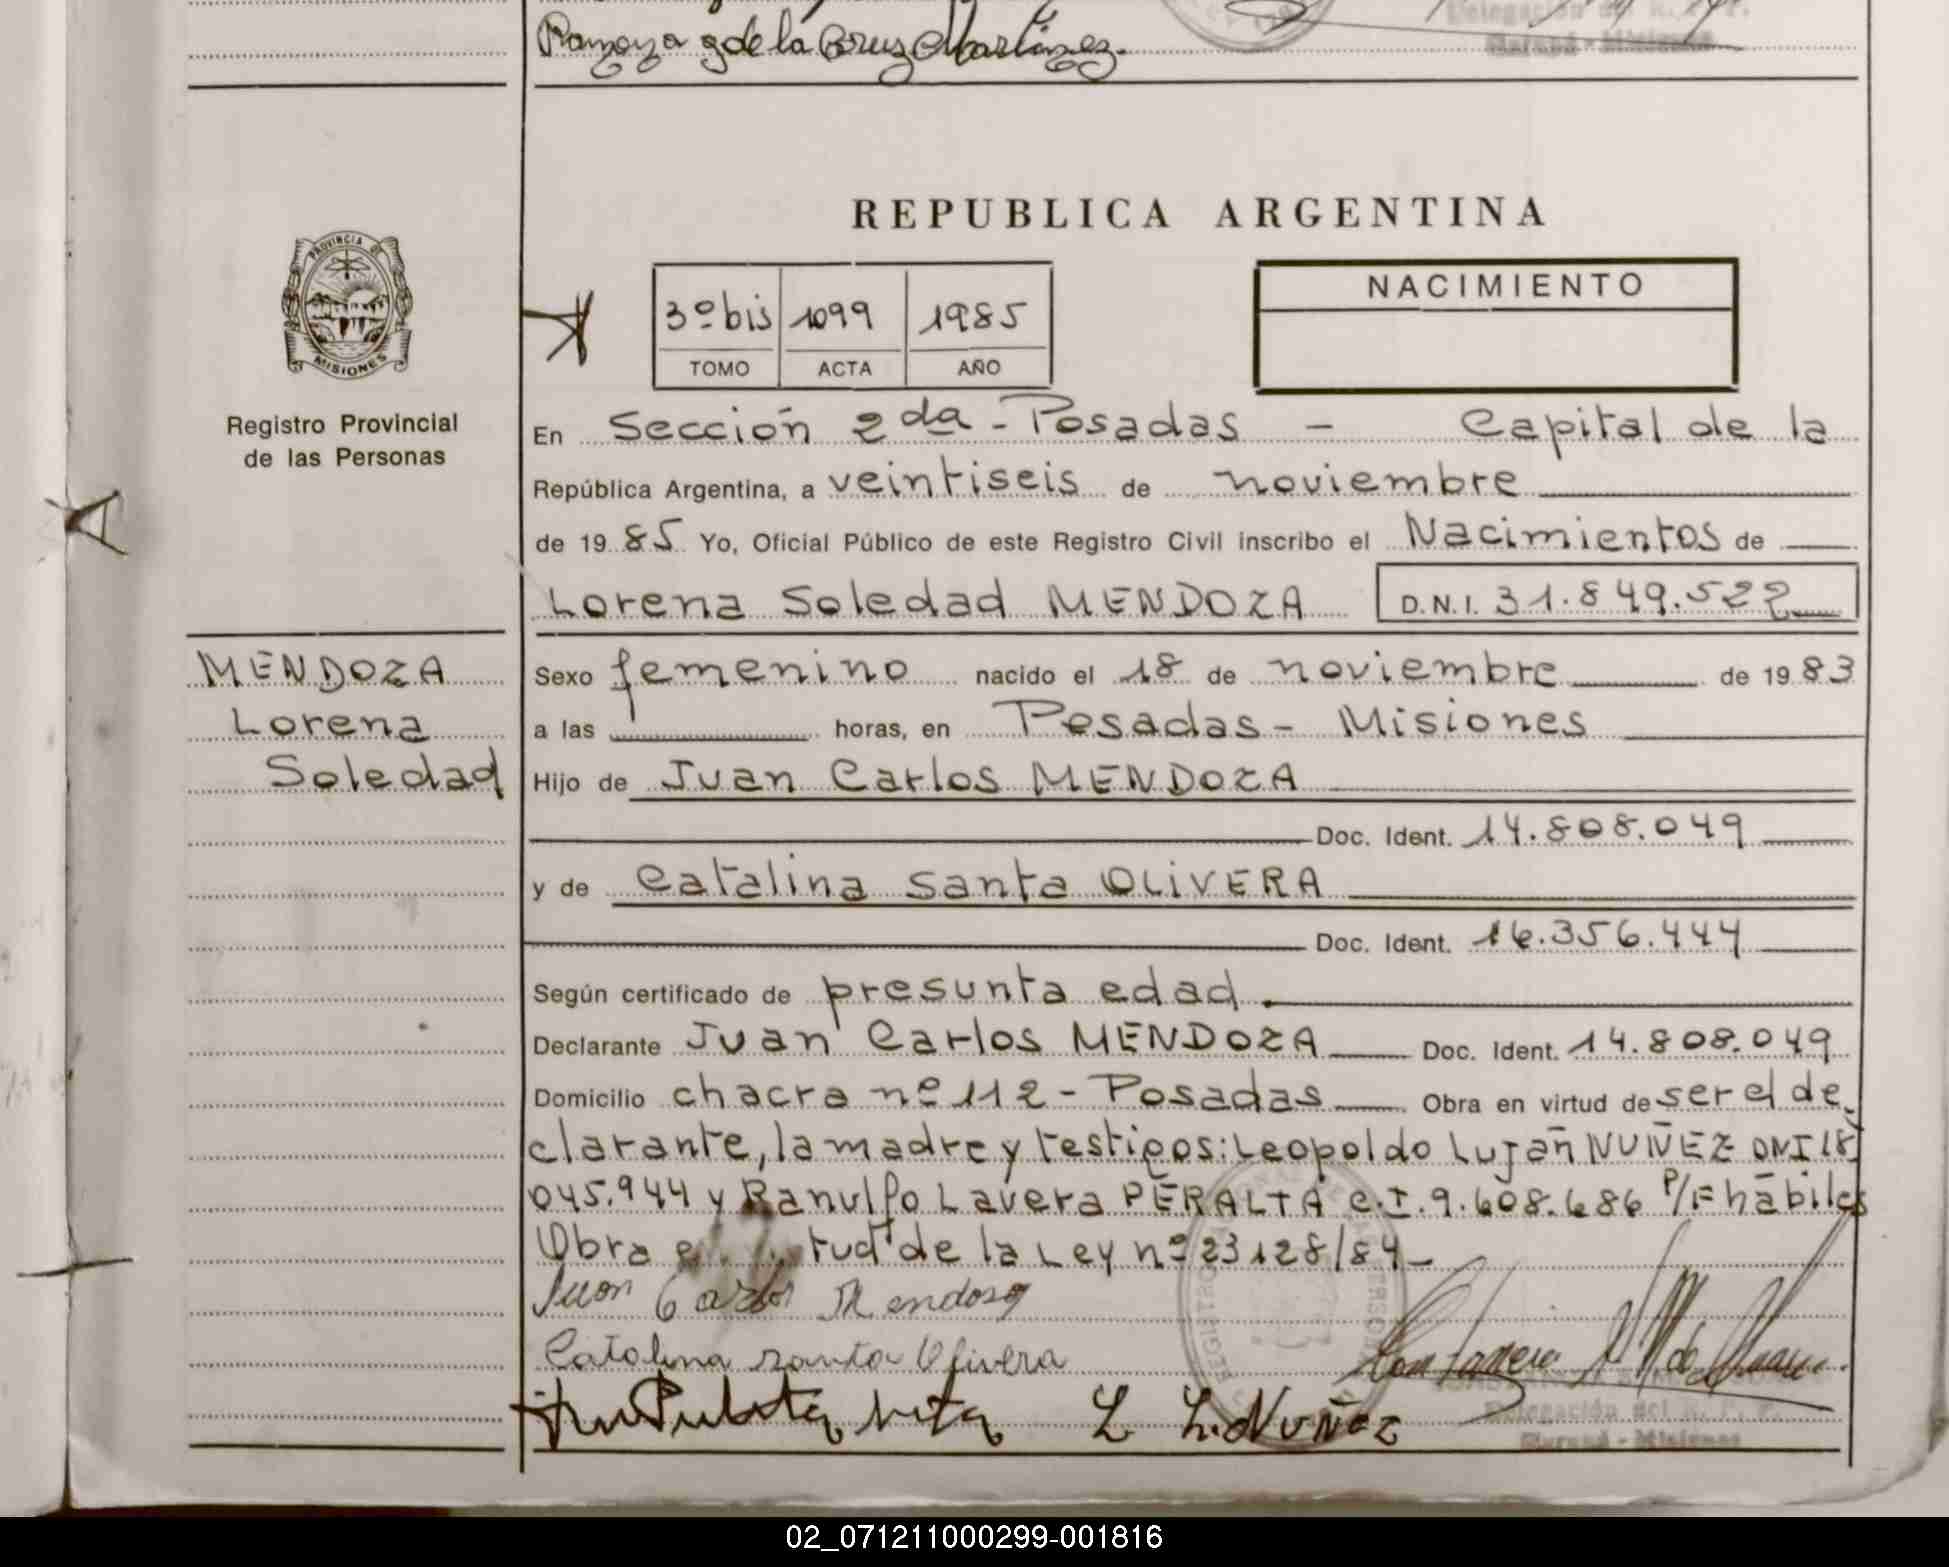 Ramona g de la Cruz Martinez.
Delegación del R. P. P.
Garupá - Misiones
REPUBLICA ARGENTINA
PROVINCIA DE
MISIONES
Registro Provincial
de las Personas
3º bis 1099 1985
TOMO ACTA AÑO
NACIMIENTO
En Sección 2da - Posadas - Capital de la
República Argentina, a veintiseis de noviembre
de 19 85 Yo, Oficial Público de este Registro Civil inscribo el Nacimientos de
Lorena Soledad MENDOZA D.N.I. 31.849.522
MENDOZA
Lorena
Soledad
Sexo femenino nacido el 18 de noviembre de 19 83
a las horas, en Posadas - Misiones
Hijo de Juan Carlos MENDOZA
Doc. Ident. 14.808.049
y de Catalina Santa OLIVERA
Doc. Ident. 16.356.444
Según certificado de presunta edad.
Declarante Juan Carlos MENDOZA Doc. Ident. 14.808.049
Domicilio chacra nº 112 - Posadas Obra en virtud de ser el de
clarante, la madre y testigos: Leopoldo Luján NUÑEZ DNI 18
045.944 y Ranulfo Lavera PERALTA C.I. 9.608.686 P/F hábiles
Obra tud de la Ley nº 23128/84 -
Juan Carlos Mendosa
Catalina Santa Olivera
L L. NUÑEZ
Delegación del R. P. P.
Garupá - Misiones
02_071211000299-001816